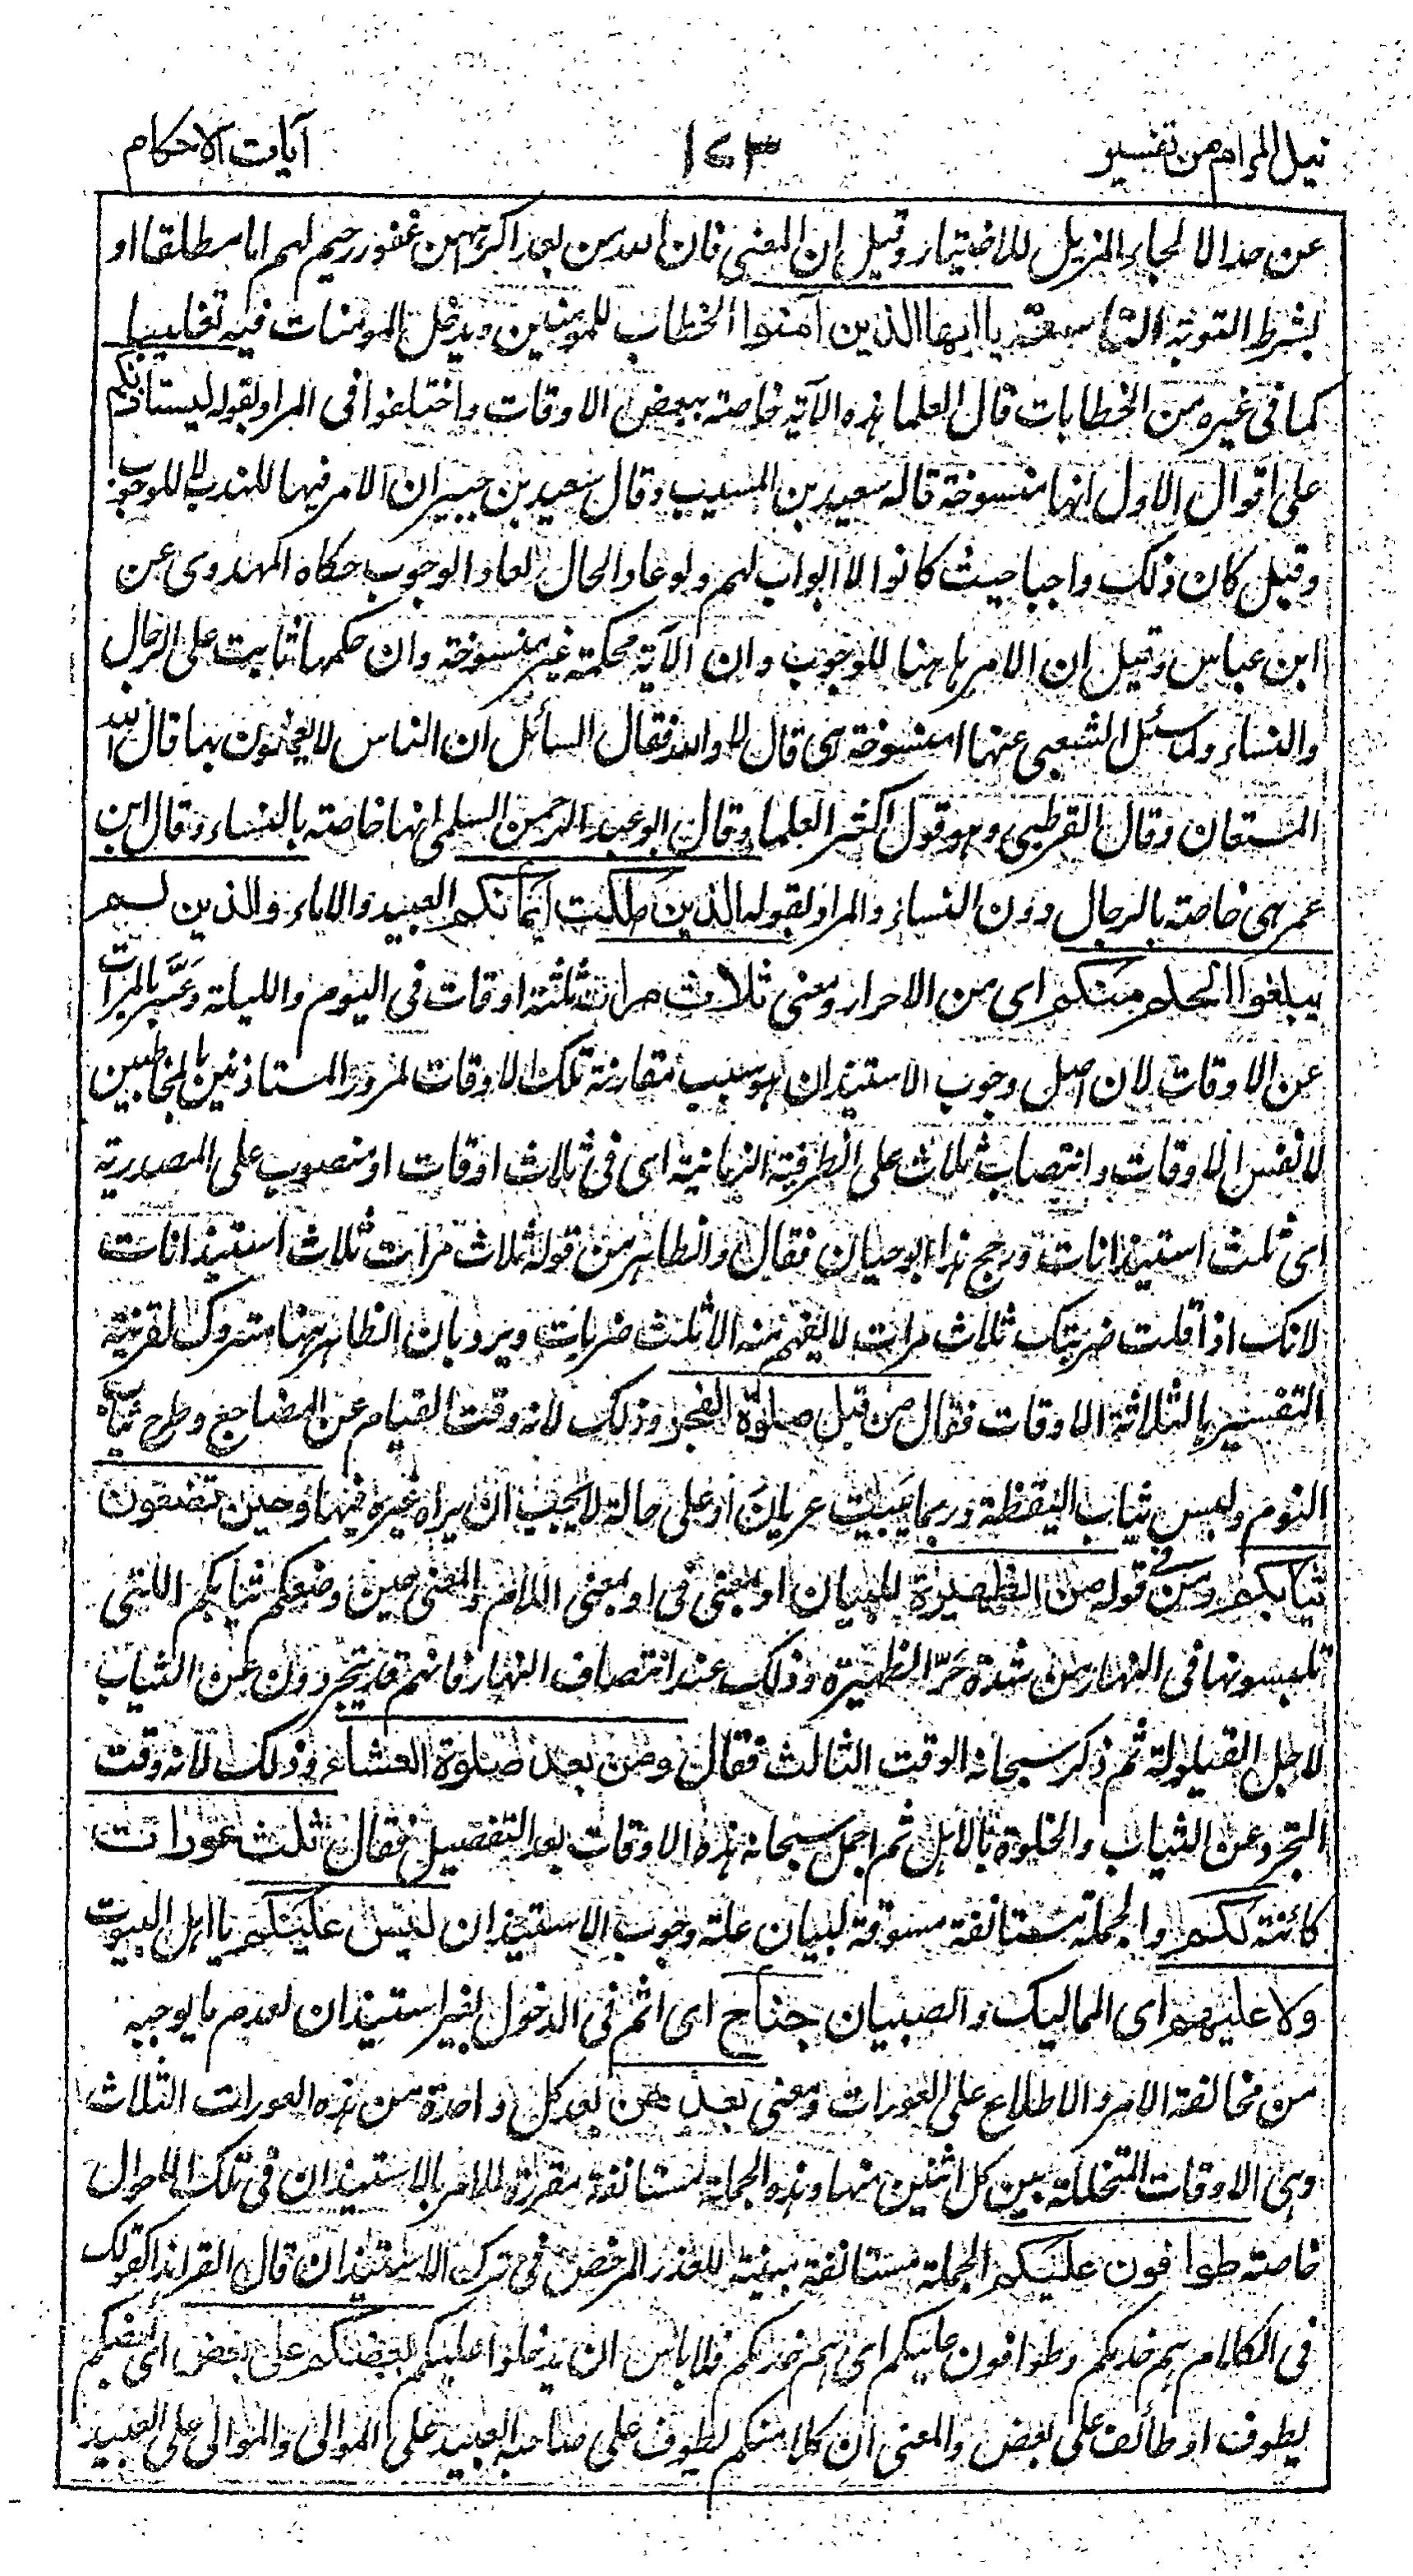 نيل المرام من تفسير ١٤٣ آيات الاحكام
عن حد الالجاء المزيل للاختيار وقيل ان المعنى فان الله من بعد اكراههن غفور رحيم لهم اما مطلقا او
بشرط التوبة التاسعة يا ايها الذين آمنوا الخطاب للمومنين ويدخل المومنات فيه تغليبا
كما في غيره من الخطابات قال العلماء هذه الآية خاصة ببعض الاوقات واختلفوا في المراد بقوله ليستاذنكم
على اقوال الاول انها منسوخة قاله سعيد بن المسيب وقال سعيد بن جبير ان الامر فيها للندب لا للوجوب
وقيل كان ذلك واجبا حيث كانوا لا ابواب لهم ولو عاد الحال لعاد الوجوب حكاه المهدوي عن
ابن عباس وقيل ان الامر ههنا للوجوب وان الآية محكمة غير منسوخة وان حكمها ثابت على الرجال
والنساء ولما سئل الشعبي عنها امنسوخة هي قال لا والله فقال السائل ان الناس لا يعملون بها قال الله
المستعان وقال القرطبي وهو قول اكثر العلماء وقال ابو عبد الرحمن السلمي انها خاصة بالنساء وقال ابن
عمر هي خاصة بالرجال دون النساء والمراد بقوله الذين ملكت ايمانكم العبيد والاماء والذين لم
يبلغوا الحلم منكم اي من الاحرار ومعنى ثلاث مرات ثلثة اوقات في اليوم والليلة وعبر بالمرات
عن الاوقات لان اصل وجوب الاستيذان هو سبب مقارنة تلك الاوقات لمرور المستاذنين بالمخاطبين
لا نفس الاوقات وانتصاب ثلاث على الظرفية الزمانية اي في ثلاث اوقات او منصوب على المصدرية
اي ثلث استيذانات ورجح هذا ابو حيان فقال والظاهر من قوله ثلاث مرات ثلاث استيذانات
لانك اذا قلت ضربتك ثلاث مرات لا يفهم منه الا ثلث ضربات ويرد بان الظاهر هنا متروك لقرينة
التفسير بالثلاثة الاوقات فقال من قبل صلوة الفجر وذلك لانه وقت القيام عن المضاجع وطرح ثياب
النوم ولبس ثياب اليقظة وربما يبيت عريان او على حالة لا يحب ان يراه غيره فيها وحين تضعون
ثيابكم ومن في قوله من الظهيرة للبيان او بمعنى في او بمعنى اللام والمعنى حين وضعكم ثيابكم اللتي
تلبسونها في النهار من شدة حر الظهيرة وذلك عند انتصاف النهار فانهم قد يتجردون عن الثياب
لاجل القيلولة ثم ذكر سبحانه الوقت الثالث فقال ومن بعد صلوة العشاء وذلك لانه وقت
التجرد عن الثياب والخلوة بالاهل ثم اجمل سبحانه هذه الاوقات بعد التفصيل فقال ثلث عورات
كائنة لكم والجملة مستانفة مسوقة لبيان علة وجوب الاستيذان ليس عليكم يا اهل البيوت
ولا عليهم اي المماليك والصبيان جناح اي اثم في الدخول بغير استيذان لعدم ما يوجبه
من مخالفة الامر والاطلاع على العورات ومعنى بعدهن بعد كل واحدة من هذه العورات الثلاث
وهي الاوقات المتخللة بين كل اثنين منها وهذه الجملة مستانفة مقررة للامر بالاستيذان في تلك الاحوال
خاصة طوافون عليكم الجملة مستانفة مبينة للعذر المرخص في ترك الاستيذان قال الفراء هذا كقولك
في الكلام هم خدمكم وطوافون عليكم اي هم خدمكم فلا باس ان يدخلوا عليكم بعضكم على بعض اي بعضكم
يطوف او طائف على بعض والمعنى ان كلا منكم يطوف على صاحبه العبيد على الموالي والموالي على العبيد